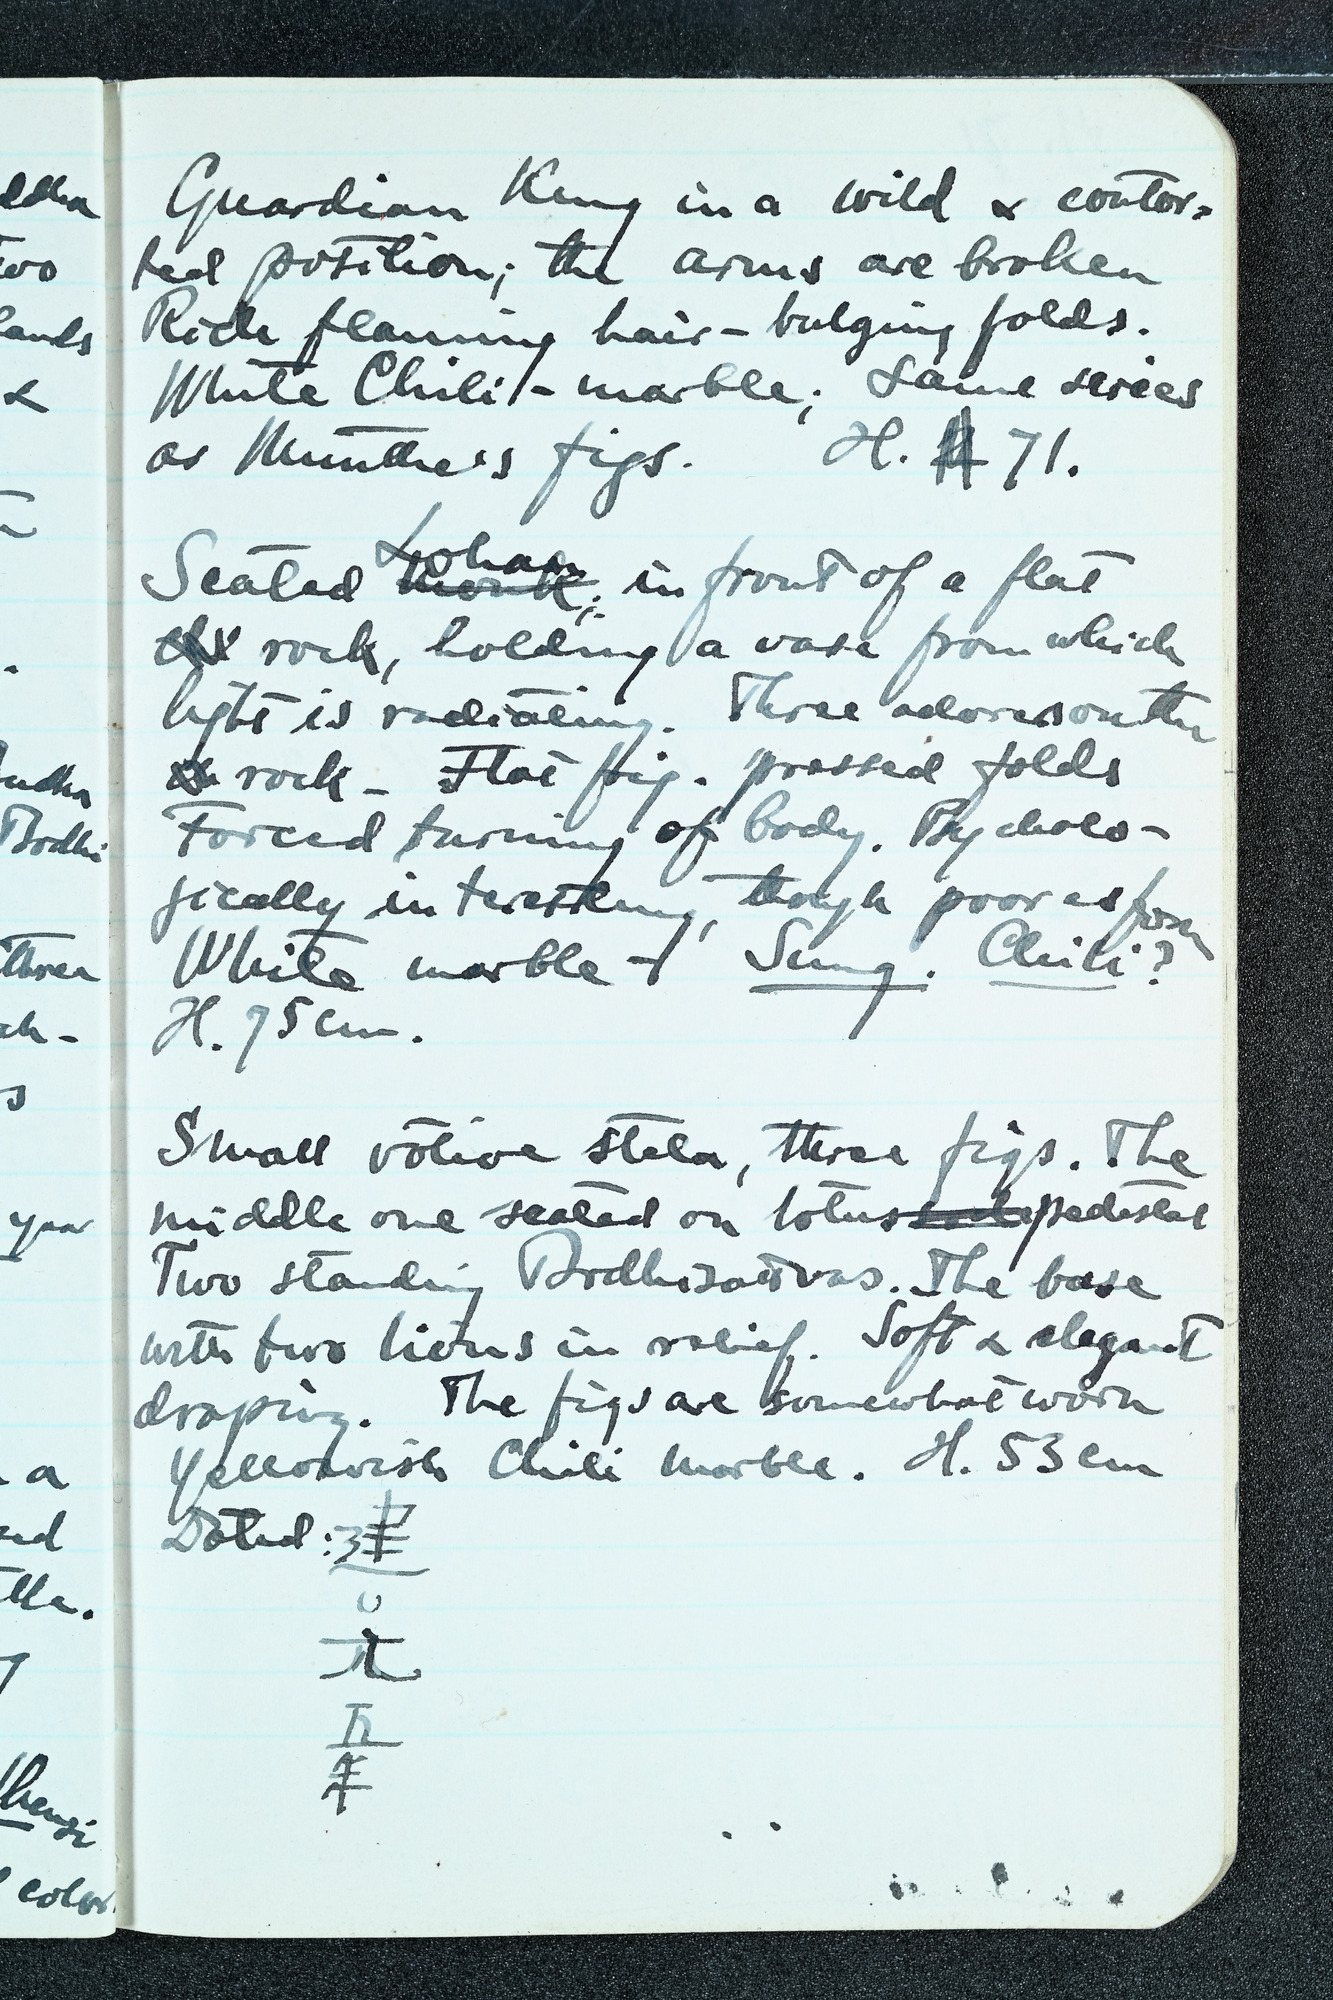 Guardian King in a wild & contor-
ted position; the arms are broken
Rich flaming hair - bulging folds.
White Chili - marble; Same series
as Munthe's figs. H. 71.
Seated Lohan monk; in front of a flat
rock, holding a vase from which
light is radiating. Three adorers on the
rock - Flat fig. pressed folds
Forced turning of body. Psycholo-
gically interesting, though poor as form
White marble - Sung. Chili?
H. 75 cm.
Small votive stela, three figs. The
middle one seated on lotus pedestal
Two standing Bodhisattvas. The base
with two lions in relief. Soft & elegant
draping. The figs are somewhat worn
Yellowish Chili marble. H. 53 cm
Dated:
年
ddha
two
hands
&
Bodhi
three
ch-
s
year
a
color.